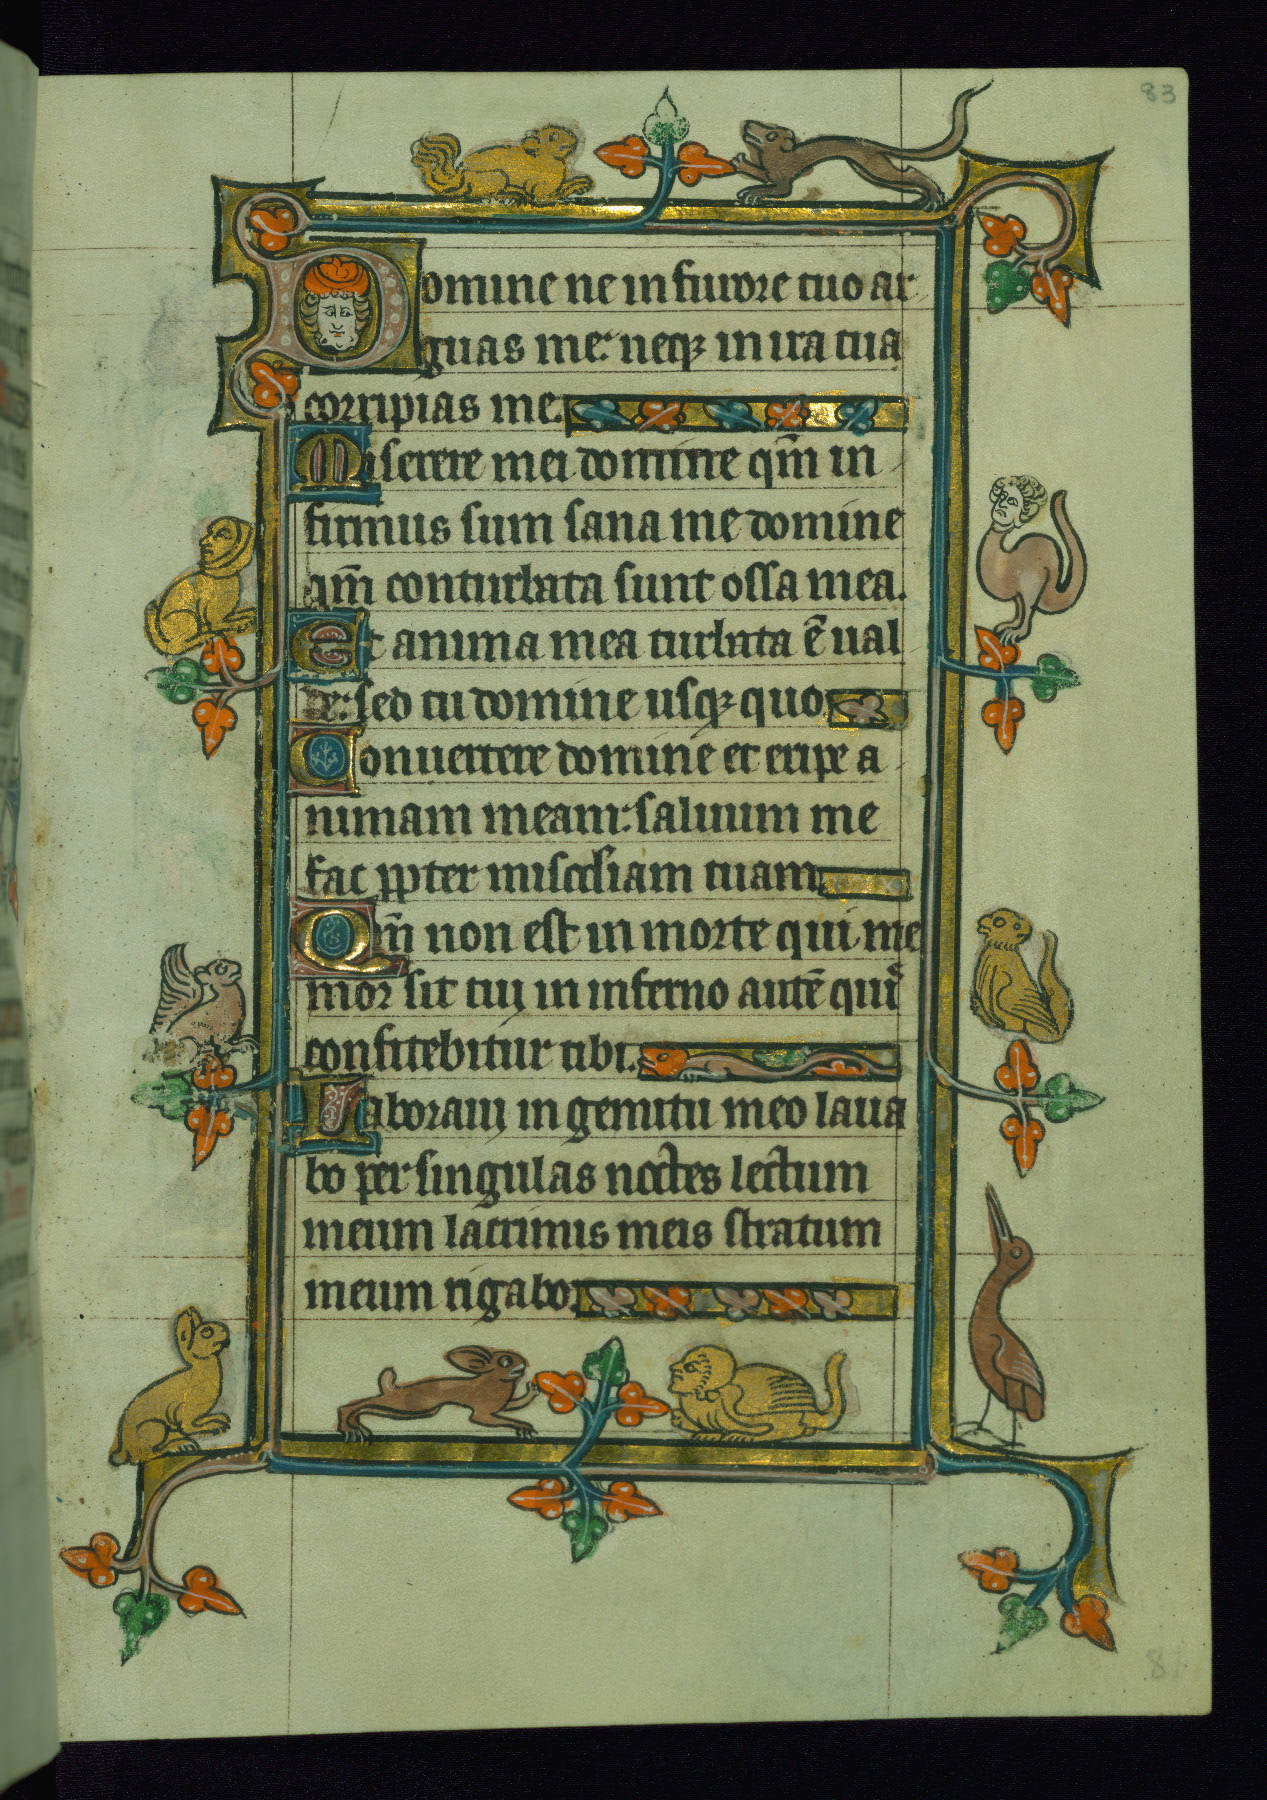 83
Domine ne in furore tuo ar
guas me: neqꝫ in ira tua
corripias me.
Miserere mei domine qm̄ in
firmus sum sana me domine
qm̄ conturbata sunt ossa mea.
Et anima mea turbata ē ual
de: sed tu domine usqꝫ quo
Conuertere domine et eripe a
nimam meam: saluum me
fac ꝓpter miscd̓iam tuam
Qm̄ non est in morte qui me
mor sit tui in inferno autē quis
confitebitur tibi.
Laboraui in gemitu meo laua
bo per singulas noctes lectum
meum lacrimis meis stratum
meum rigabo.